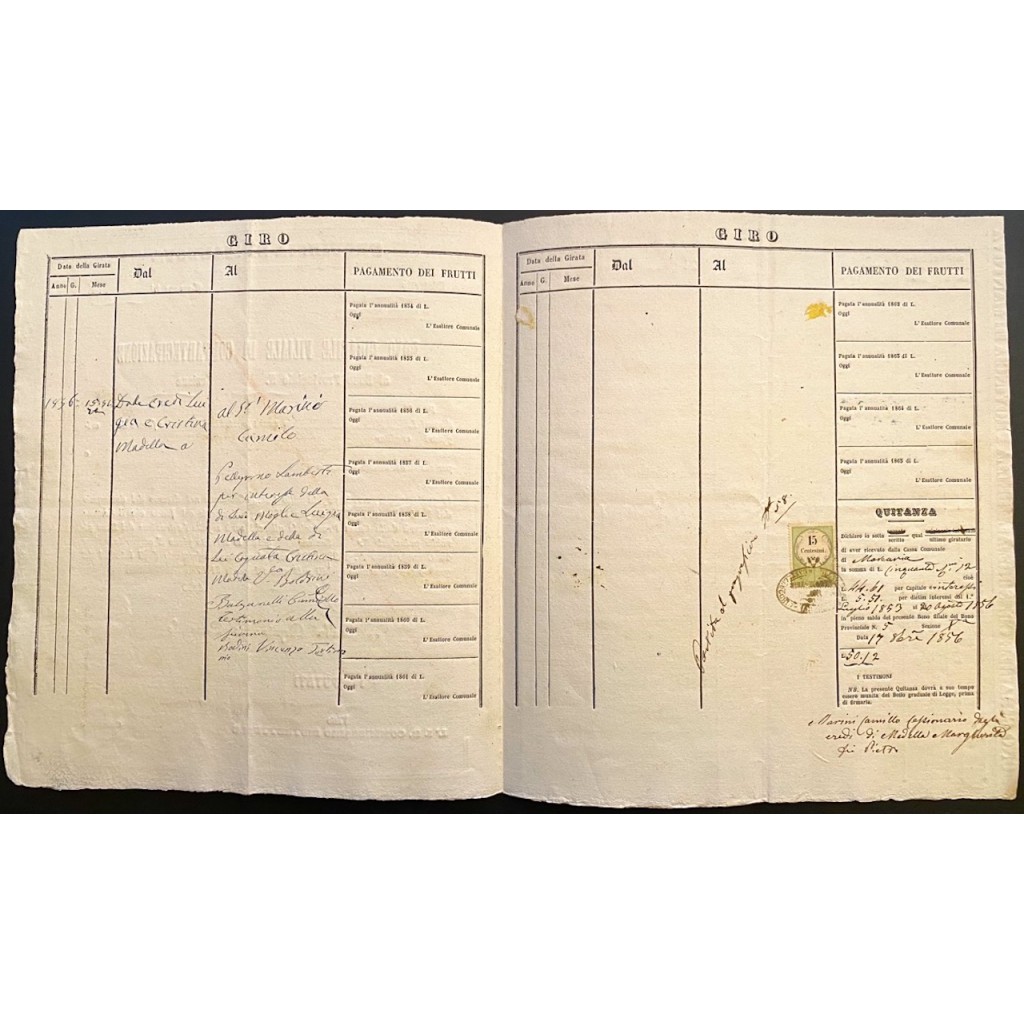 GIRO
Data della Girata
Dal
Al
PAGAMENTO DEI FRUTTI
Anno G. Mese
Pagata l'annualità 1854 di L.
Oggi
L'Esattore Comunale
Pagata l'annualità 1855 di L.
Oggi
L'Esattore Comunale
Pagata l'annualità 1856 di L.
Oggi
L'Esattore Comunale
Pagata l'annualità 1857 di L.
Oggi
L'Esattore Comunale
Pagata l'annualità 1858 di L.
Oggi
L'Esattore Comunale
Pagata l'annualità 1859 di L.
Oggi
L'Esattore Comunale
Pagata l'annualità 1860 di L.
Oggi
L'Esattore Comunale
Pagata l'annualità 1861 di L.
Oggi
1856
Dalle eredi Lui
gia e Cristina
Madella a
al Sr Marini
Camilo
Pellegrino Lamberti
per della
di Lui Moglie Luigia
Madella e della di
Lei Cognata Cristina
Boldrini
Camillo
testimonio alla
Bodini Vincenzo
GIRO
Data della Girata
Dal
Al
PAGAMENTO DEI FRUTTI
Anno G. Mese
Pagata l'annualità 1862 di L.
Oggi
L'Esattore Comunale
Pagata l'annualità 1863 di L.
Oggi
L'Esattore Comunale
Pagata l'annualità 1864 di L.
Oggi
L'Esattore Comunale
Pagata l'annualità 1865 di L.
Oggi
L'Esattore Comunale
QUITANZA
Dichiaro io sotto qual
scritto ultimo giratario
di aver ricevuto dalla Cassa Comunale
di
la somma di L. Cinquanta 12
cioè
L. 44.61 per Capitale interessi
L. 5.51 per dietim interessi dal 1.°
Luglio 1853 al 20 Agosto 1856
in pieno saldo del presente Bono filiale del Bono
Provinciale N. 5 Sezione
Data 17 1856
50.12
I TESTIMONI
NB. La presente Quitanza dovrà a suo tempo
essere munita del Bollo graduale di Legge, prima
di firmarla.
Marini Camillo Cessionario degli
eredi di Madella Margherita
fu Pietro
15
Centesimi
58